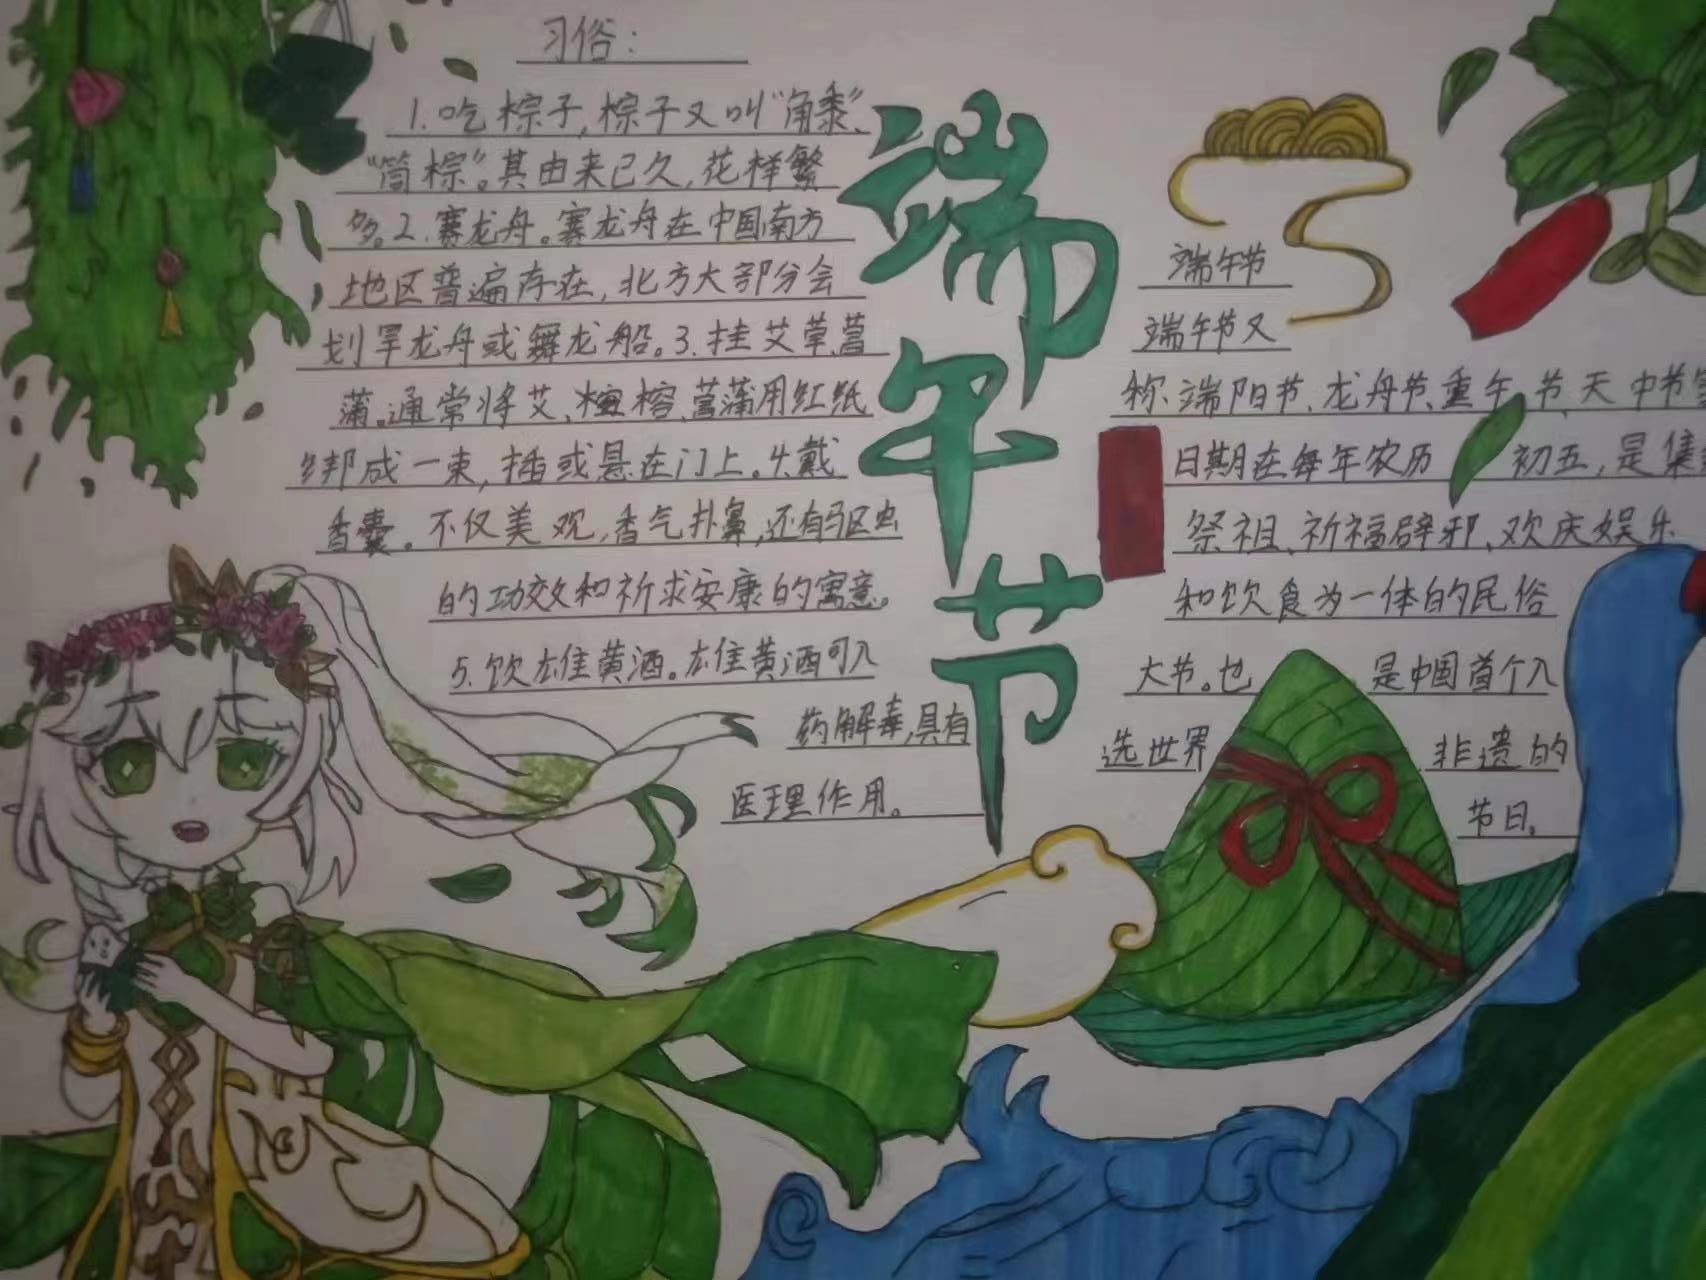 习俗：
1.吃粽子,粽子又叫“角黍”、
“筒粽”。其由来已久,花样繁
多。2.赛龙舟。赛龙舟在中国南方
地区普遍存在,北方大部分会
划旱龙舟或舞龙船。3.挂艾草、菖
蒲。通常将艾、榕、菖蒲用红纸
绑成一束,插或悬在门上。4.戴
香囊。不仅美观,香气扑鼻,还有驱虫
的功效和祈求安康的寓意。
5.饮雄黄酒。雄黄酒可入
药解毒,具有
医理作用。
端午节
端午节
端午节又
称、端阳节、龙舟节、重午节、天中节
日期在每年农历 初五,是集
祭祖、祈福辟邪、欢庆娱乐
和饮食为一体的民俗
大节。也 是中国首个入
选世界 非遗的
节日。